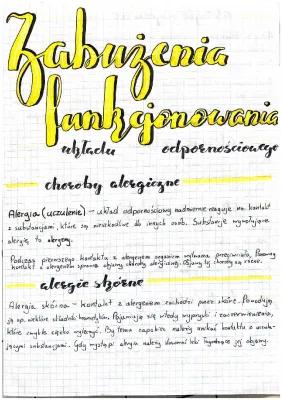 Zabużenia
funkcjonowania
układu odpornościowego
choroby alergiczne
Alergia (uczulenie) – układ odpornościowy nadmiernie reaguje na kontakt
z substancjami, które są nieszkodliwe dla innych osób. Substancje wywołujące
alergię to alergeny.
Podczas pierwszego kontaktu z alergenem organizm wytwarza przeciwciała. Ponowny
kontakt z alergenem sprawia objawy choroby alergicznej. Objawy tej choroby są różne.
alergie skórne
Alergia skórna – kontakt z alergenem zachodzi przez skórę. Powodują
ją np. niektóre składniki kosmetyków. Pojawiają się wtedy wypryski i zaczerwienienia,
które zwykle ciężko wyleczyć. By temu zapobiec należy unikać kontaktu z uczula-
jącymi substancjami. Gdy wystąpi alergia należy stosować leki łagodzące jej objawy.